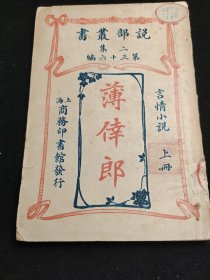 説部叢書
二集
第三十六編
言情小説 上冊
薄倖郎
上海
商務印書館發行